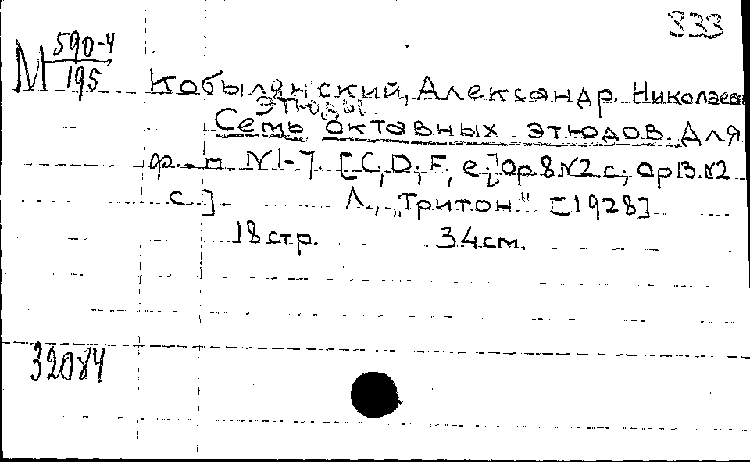 333
М 590-4
195
Кобылянский, Александр Николаев
Этюды
Семь октавных этюдов. Для
ф.-п N1-7 [C, D, F, e, Op 8 N2 c; Op 13 N2
c.] Л., „Тритон" [1928]
18 стр. 34 см.
32084